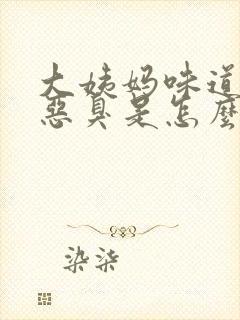 大姨妈味道
恶臭是怎麼
染柒